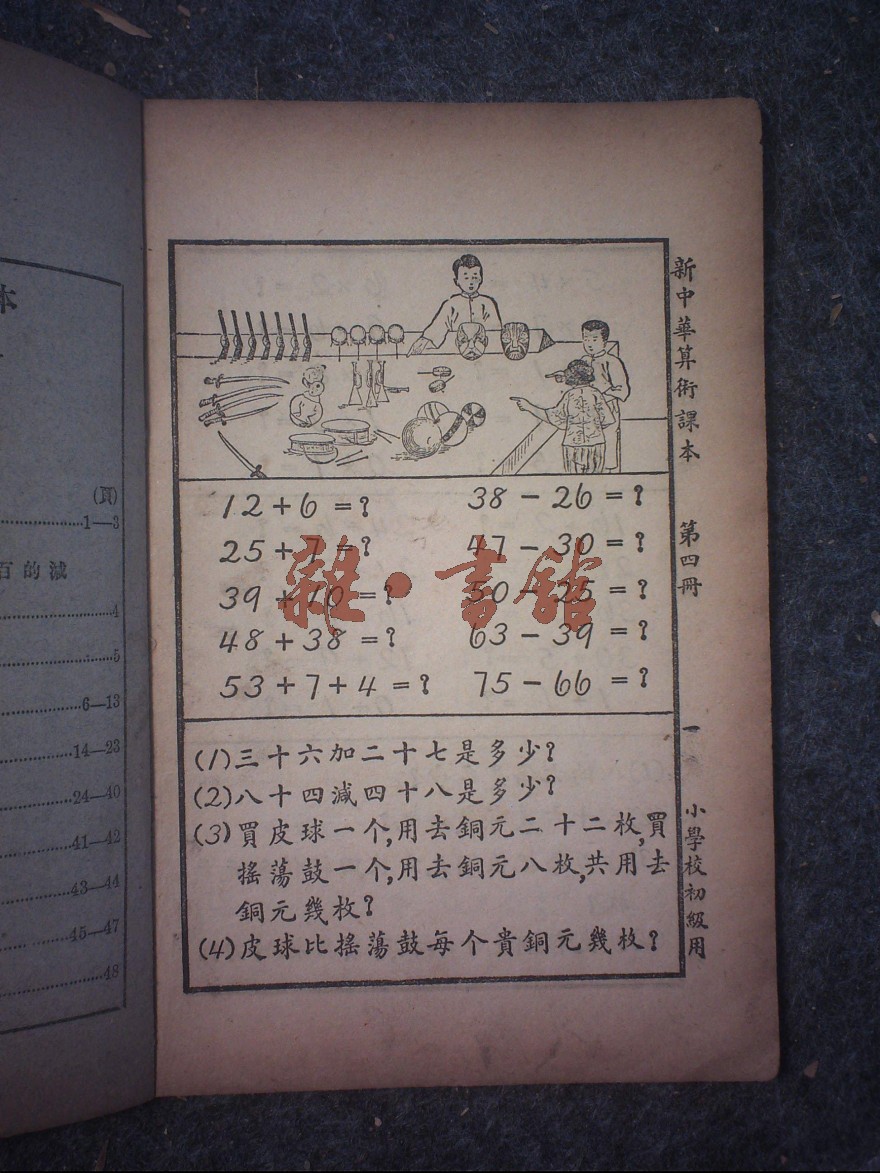 本
(頁)
1—3
百的減
4
5
6—13
14—23
24—40
41—42
43—44
45—47
48
12+6=?
38-26=?
25+7=?
47-30=?
39+10=?
50-25=?
48+38=?
63-39=?
53+7+4=?
75-66=?
(1)三十六加二十七是多少?
(2)八十四減四十八是多少?
(3)買皮球一个,用去銅元二十二枚,買
搖蕩鼓一个,用去銅元八枚,共用去
銅元幾枚?
(4)皮球比搖蕩鼓每个貴銅元幾枚?
新中華算術課本 第四冊 一 小學校初級用
雜·書館